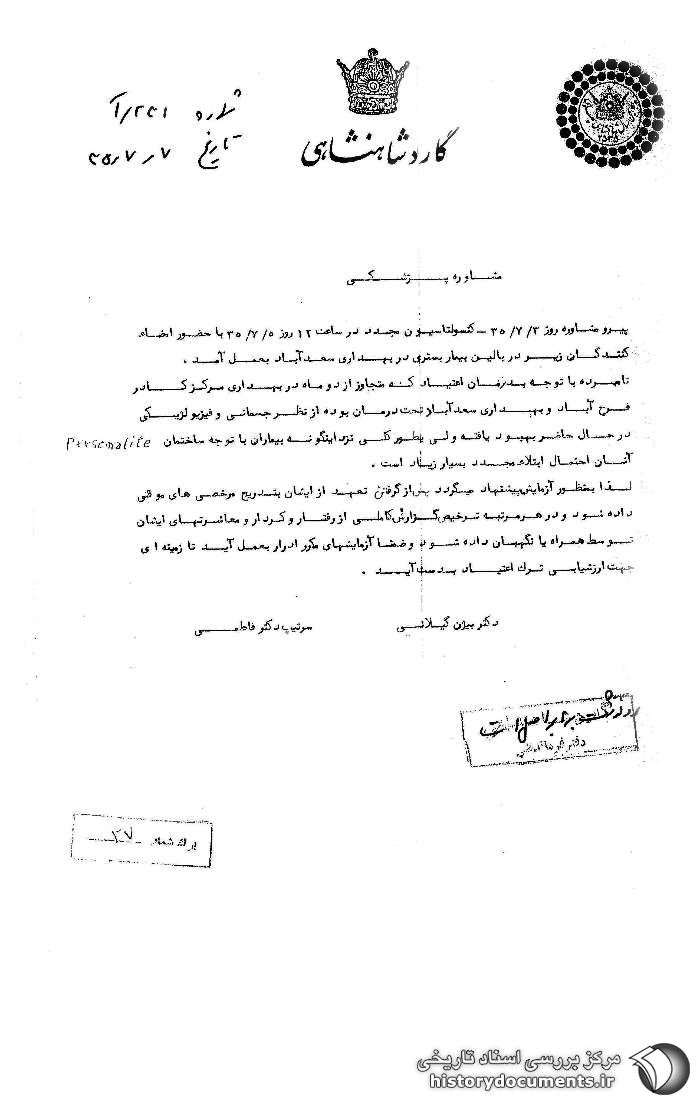 شماره ۲۲۱/آ
تاریخ ۳۵/۷/۷
گارد شاهنشاهی
مشاوره پزشکی
پیرو مشاوره روز ۳۵/۷/۳ - کنسولتاسیون مجدد در ساعت ۱۲ روز ۳۵/۷/۵ با حضور امضاء
کنندگان زیر در بالین بیمار بستری در بهداری سعدآباد بعمل آمد .
نامبرده با توجه بدرمان اعتیاد که متجاوز از دو ماه در بهداری مرکز کادر
فرح آباد و بهداری سعدآباد تحت درمان بوده از نظر جسمانی و فیزیولژیکی
در حال حاضر بهبود یافته ولی بطور کلی نزد اینگونه بیماران با توجه ساختمان Personalite
آنان احتمال ابتلاء مجدد بسیار زیاد است .
لذا بمنظور آزمایش پیشنهاد میگردد پس از گرفتن تعهد از ایشان بتدریج مرخصی های موقتی
داده شود و در هر مرتبه ترخیص گزارش کاملی از رفتار و کردار و معاشرتهای ایشان
توسط همراه یا نگهبان داده شود و ضمنا آزمایشهای مکرر ادرار بعمل آید تا زمینه ای
جهت ارزشیابی ترک اعتیاد بدست آید .
دکتر بیژن گیلانی سرتیپ دکتر فاطمی
رونوشت برابر اصل است
برگ شمار ۲۷
مرکز بررسی اسناد تاریخی
historydocuments.ir